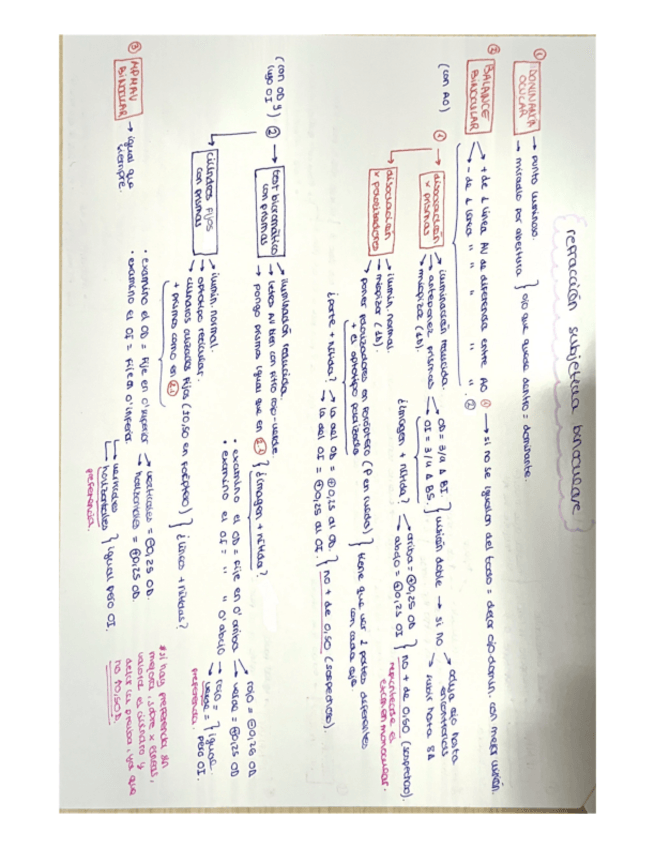 refracción subjetiva binocular
① DOMINANCIA OCULAR → punto luminoso.
→ mirarlo por abertura } ojo que quede dentro = dominante.
② BALANCE BINOCULAR → + de 1 línea AV de diferencia entre AO ① → si no se igualan del todo = dejar ojo domin. con mejor visión.
→ - de 1 línea " " " " " ②
(con AO) ① → disociación x prismas → iluminación reducida.
→ anteponer prismas → OD = 3/4 Δ BI.
OI = 3/4 Δ BS. } visión doble → si no → ocluyo ojo hasta
→ subir hasta 8Δ
→ miopizar (1D).
¿imagen + nítida? → arriba = ⊕0,25 OD
→ abajo = ⊕0,25 OI } no + de 0,50 (sospechoso).
disociación x polarizadores → ilumin. normal.
→ miopizar (1D).
→ poner polarizadores en foróptero (P en rueda) } tiene que ver 2 partes diferentes
+ el optotipo polarizado
con cada ojo.
¿parte + nítida? → la del OD = ⊕0,25 al OD.
→ la del OI = ⊕0,25 al OI. } no + de 0,50 (sospechoso)
(con OD y luego OI) ② → test bicromático con prismas → iluminación reducida.
→ letras AV bien con filtro rojo-verde.
→ pongo prisma igual que en 2.1 } ¿imagen + nítida?
• examino el OD = fije en 0' arriba → rojo = ⊖0,25 OD
→ verde = ⊕0,25 OD
• examino el OI = " " 0' abajo → rojo =
verde = } igual pero OI.
preferencia.
cilindros fijos con prismas → ilumin. normal.
→ optotipo reticular.
→ cilindros cruzados fijos (±0,50 en foróptero) } ¿líneas + nítidas?
+ prismas como en 2.1
• examino el OD = fije en 0' inferior → verticales = ⊖0,25 OD.
→ horizontales = ⊕0,25 OD.
• examino el OI = fije en 0' inferior → verticales
→ horizontales } igual pero OI.
preferencia.
*si hay preferencia sin
mejora, sobre x líneas,
valorar el cilindro y
no ±0,50D.
③ MPMAV BINOCULAR → igual que siempre.